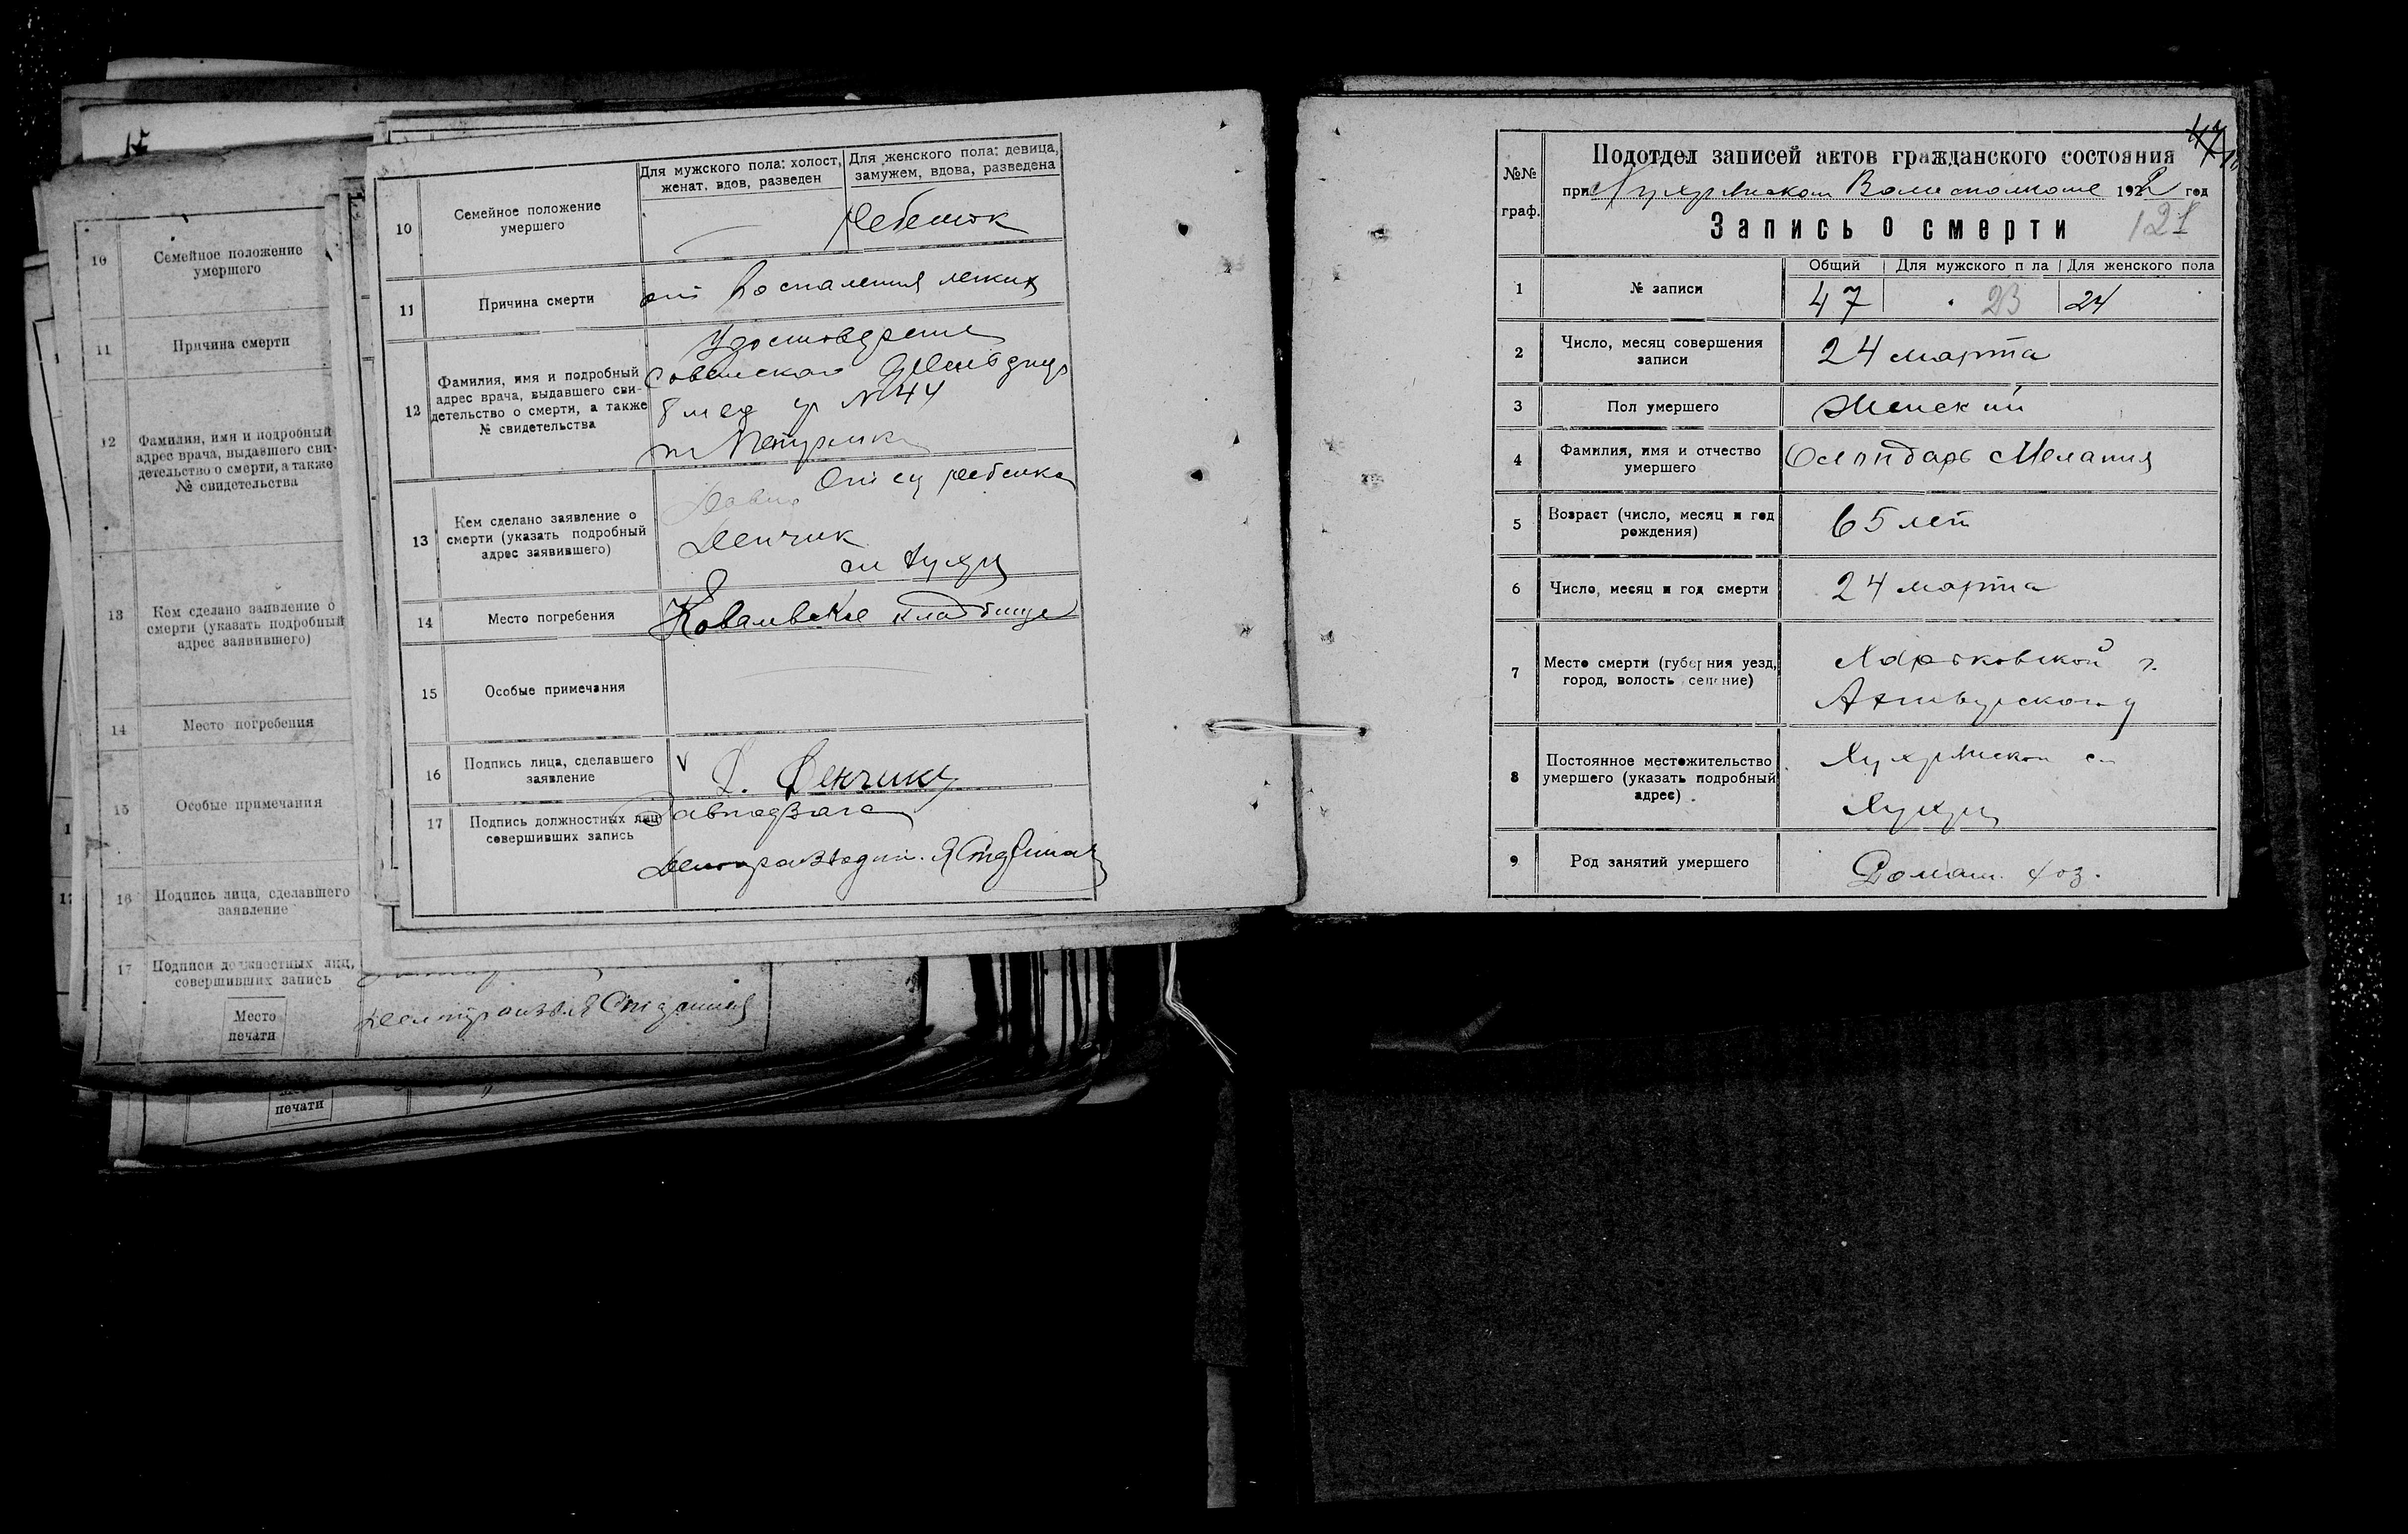 10
Семейное положение
умершего
11
Причина смерти
12
Фамилия, имя и подробный
адрес врача, выдавшего сви-
детельство о смерти, а также
№ свидетельства
13
Кем сделано заявление о
смерти (указать подробный
адрес заявившего)
14
Место погребения
15
Особые примечания
16
Подпись лица, сделавшего
заявление
17
Подписи должностных лиц,
совершивших запись
Место
печати
печати
10
Семейное положение
умершего
Для мужского пола: холост,
женат, вдов, разведен
Для женского пола: девица,
замужем, вдова, разведена
Ребенок
11
Причина смерти
от воспаления легких
12
Фамилия, имя и подробный
адрес врача, выдавшего сви-
детельство о смерти, а также
№ свидетельства
Удостоверение
N 44
13
Кем сделано заявление о
смерти (указать подробный
адрес заявившего)
Отец ребенка
Денчик
сл Хухры
14
Место погребения
Ковалевское кладбище
15
Особые примечания
16
Подпись лица, сделавшего
заявление
V Д. Денчик
17
Подпись должностных лиц
совершивших запись
Завподзагс
Делопроизводит.
№№
граф.
Подотдел записей актов гражданского состояния
при Хухрянском Волисполкоме 1922 год
Запись о смерти
121
1
№ записи
Общий
Для мужского п ла
Для женского пола
47
23
24
2
Число, месяц совершения
записи
24 марта
3
Пол умершего
Женский
4
Фамилия, имя и отчество
умершего
Мелания
5
Возраст (число, месяц и год
рождения)
65 лет
6
Число, месяц и год смерти
24 марта
7
Место смерти (губерния уезд,
город, волость селение)
Харьковской г.
Ахтырского у
8
Постоянное местожительство
умершего (указать подробный
адрес)
Хухрянской сл
Хухры
9
Род занятий умершего
Домаш. хоз.